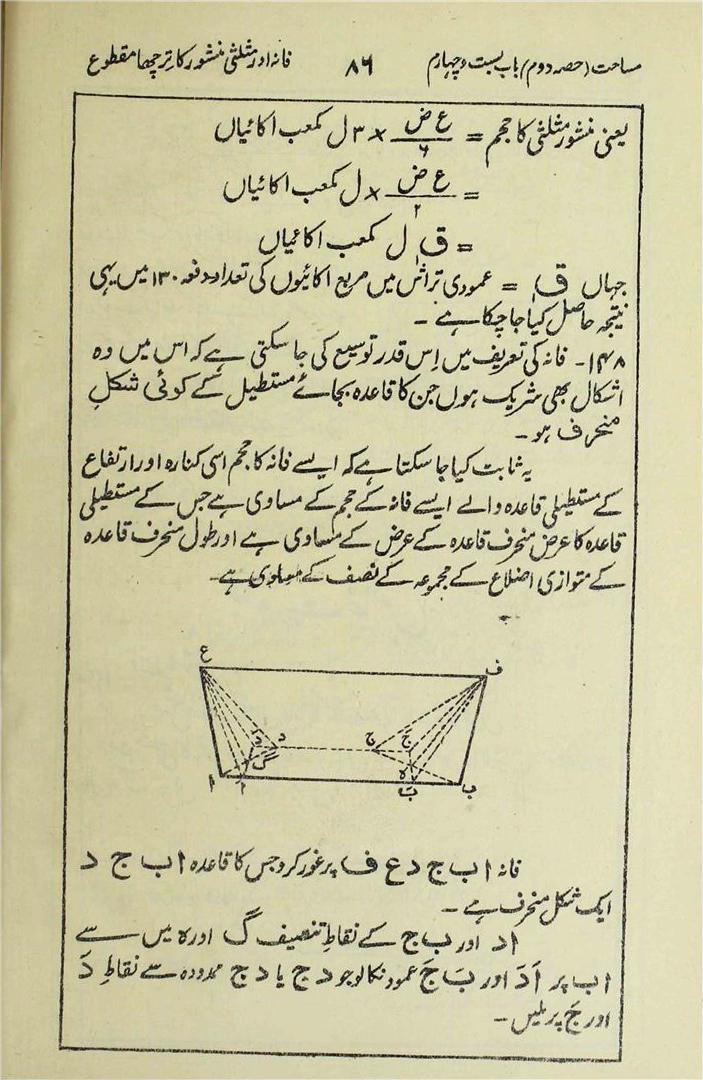 مساحت (حصہ دوم) باب بست و چہارم ۸۶ فانہ اور مثلثی منشور کا ترچھا مقطوع
یعنی منشور مثلثی کا حجم = ع ض / ۶ × ۳ ل مکعب اکائیاں
= ع ض / ۲ × ل مکعب اکائیاں
= ق ل مکعب اکائیاں
جہاں ق = عمودی تراش میں مربع اکائیوں کی تعداد دفعہ ۱۳۰ میں یہی
نتیجہ حاصل کیا جا چکا ہے ۔
۱۴۸۔ فانہ کی تعریف میں اِس قدر توسیع کی جا سکتی ہے کہ اس میں وہ
اشکال بھی شریک ہوں جن کا قاعدہ بجائے مستطیل کے کوئی شکلِ
منحرف ہو ۔
یہ ثابت کیا جا سکتا ہے کہ ایسے فانہ کا حجم اسی کنارہ اور ارتفاع
کے مستطیلی قاعدہ والے ایسے فانہ کے حجم کے مساوی ہے جس کے مستطیلی
قاعدہ کا عرض منحرف قاعدہ کے عرض کے مساوی ہے اور طول منحرف قاعدہ
کے متوازی اضلاع کے مجموعہ کے نصف کے مساوی ہے۔
ع ف
دَ د ج جَ
گ ہ
ا اَ بَ ب
فانہ ا ب ج د ع ف پر غور کرو جس کا قاعدہ ا ب ج د
ایک شکل منحرف ہے ۔
ا د اور ب ج کے نقاطِ تنصیف گ اور ہ میں سے
ا ب پر اَ دَ اور بَ جَ عمود نکالو جو د ج یا د ج ممدودہ سے نقاطِ دَ
اور جَ پر ملیں ۔